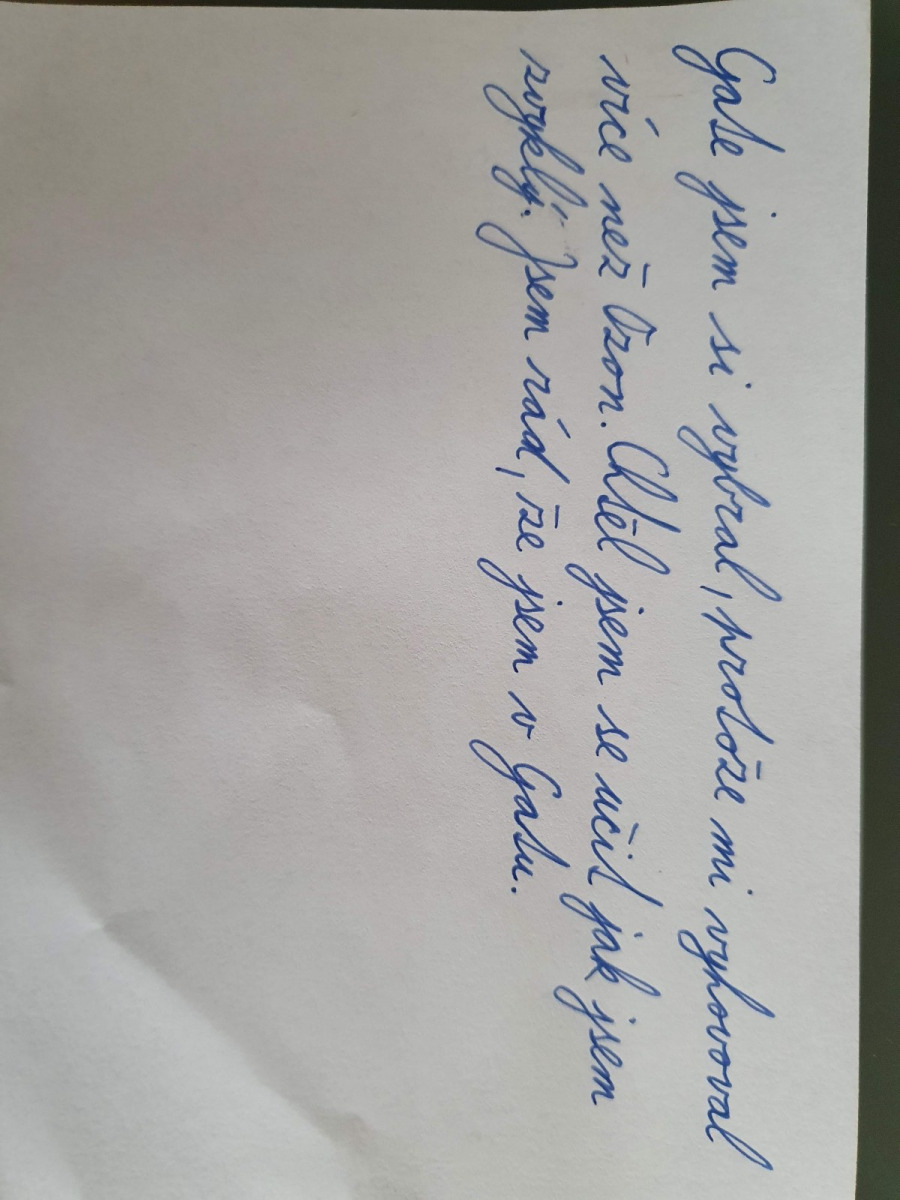 Gate jsem si vybral, protože mi vyhovoval
více než Ozon. Chtěl jsem se učit jak jsem
zvyklý. Jsem rád, že jsem v Gatu.